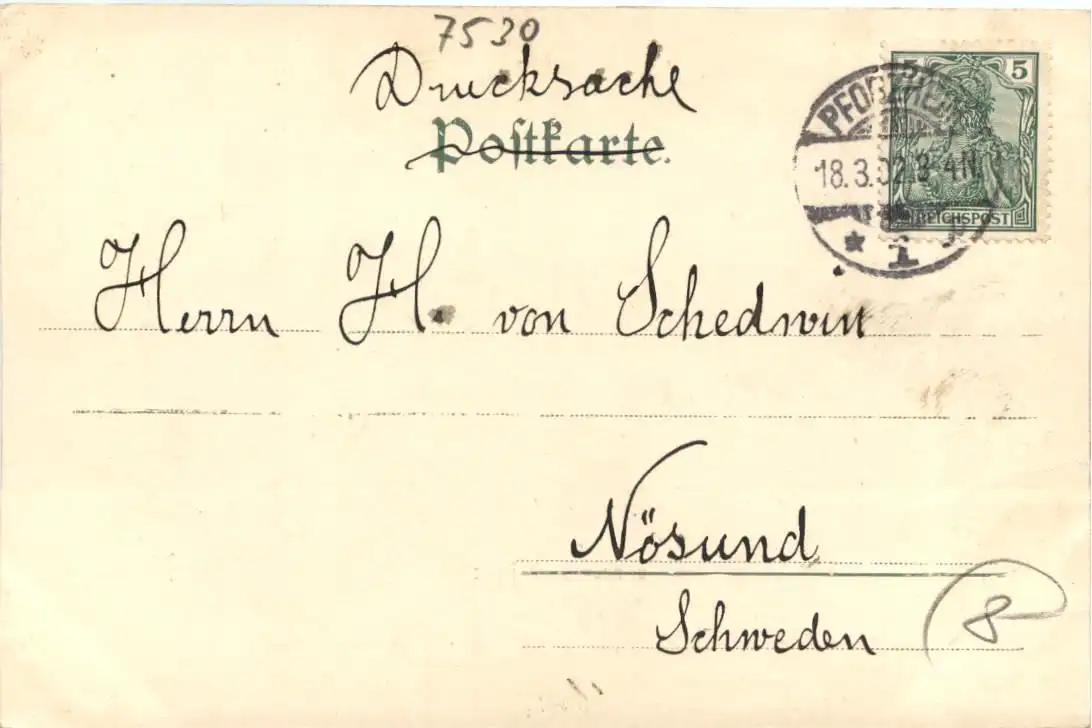 7530
Drucksache
Postkarte.
5 5
PFORZHEIM
18.3.02.3-4N.
REICHSPOST
* 1
Herrn H. von Schedwin
Nösund
Schweden
8